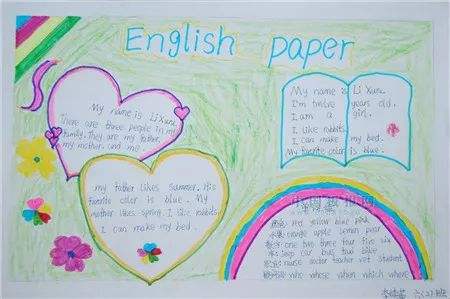 English paper
My name is Li Xunu.
There are three people in my
family. They are my father,
my mother and me.
My name is Li Xunu.
I'm twelve years old.
I am a girl.
I like rabbits.
I can make my bed.
My favorite color is blue.
my father likes summer. His
favorite color is blue. My
mother likes spring. I like rabbits.
I can make my bed.
red yellow blue pink
水果 orange apple lemon pear
数字 one two three four five six
jeep car bus taxi bike
nurse doctor teacher vet student
who whose when which where
六(2)班